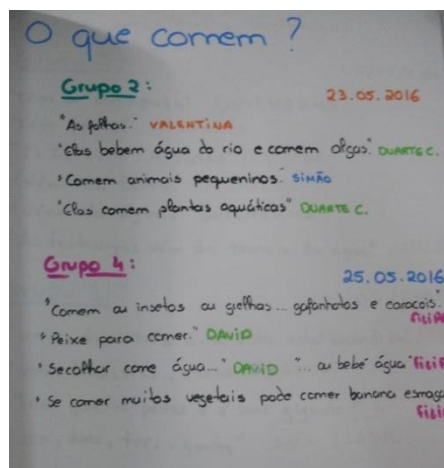 O que comem?
Grupo 2:
23.05.2016
"As folhas." VALENTINA
"Elas bebem água do rio e comem algas." DUARTE C.
"Comem animais pequeninos." SIMÃO
"Elas comem plantas aquáticas" DUARTE C.
Grupo 4:
25.05.2016
"Comem ou insetos ou grelhas... gafanhotos e caracois".
"Peixe para comer." DAVID
"Secalhar come água..." DAVID "... ou bebe água"
"Se comer muitos vegetais pode comer banana